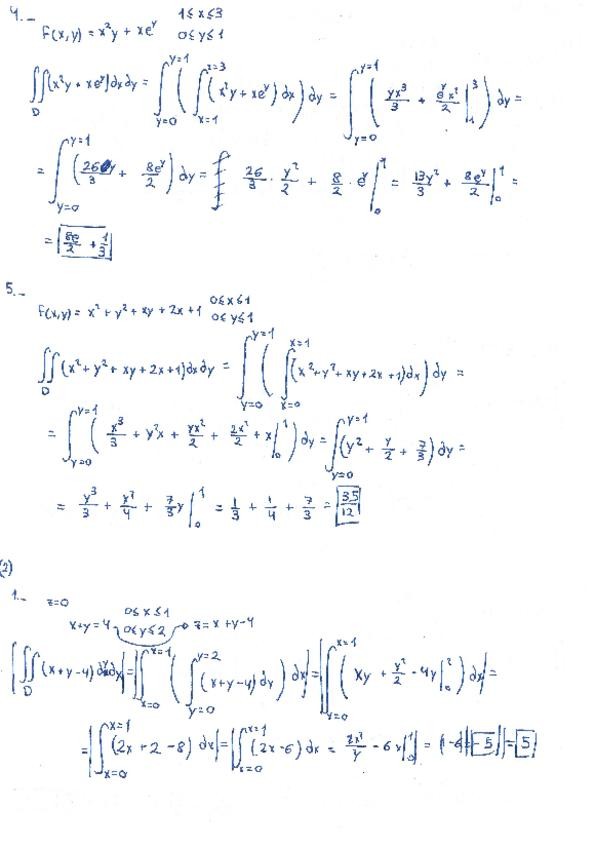 4._ f(x,y) = x²y + xe^y   1≤x≤3   0≤y≤1
∬_D (x²y + xe^y) dx dy = ∫_{y=0}^{y=1} ( ∫_{x=1}^{x=3} (x²y + xe^y) dx ) dy = ∫_{y=0}^{y=1} ( yx³/3 + e^y x²/2 |_1^3 ) dy =
= ∫_{y=0}^{y=1} ( 26y/3 + 8e^y/2 ) dy = 26/3 · y²/2 + 8/2 · e^y |_0^1 = 13y²/3 + 8e^y/2 |_0^1 =
= 8e/2 + 1/3
5._ f(x,y) = x² + y² + xy + 2x + 1   0≤x≤1   0≤y≤1
∬_D (x² + y² + xy + 2x + 1) dx dy = ∫_{y=0}^{y=1} ( ∫_{x=0}^{x=1} (x² + y² + xy + 2x + 1) dx ) dy =
= ∫_{y=0}^{y=1} ( x³/3 + y²x + yx²/2 + 2x²/2 + x |_0^1 ) dy = ∫_{y=0}^{y=1} (y² + y/2 + 7/3) dy =
= y³/3 + y²/4 + 7/3 y |_0^1 = 1/3 + 1/4 + 7/3 = 35/12
(2)
1._ z=0
x+y=4   0≤x≤1   0≤y≤2   z=x+y-4
|∬_D (x+y-4) dy dx| = |∫_{x=0}^{x=1} ( ∫_{y=0}^{y=2} (x+y-4) dy ) dx| = |∫_{x=0}^{x=1} ( xy + y²/2 - 4y |_0^2 ) dx| =
= |∫_{x=0}^{x=1} (2x + 2 - 8) dx| = |∫_{x=0}^{x=1} (2x-6) dx = 2x²/2 - 6x |_0^1| = |1-6| = |-5| = 5